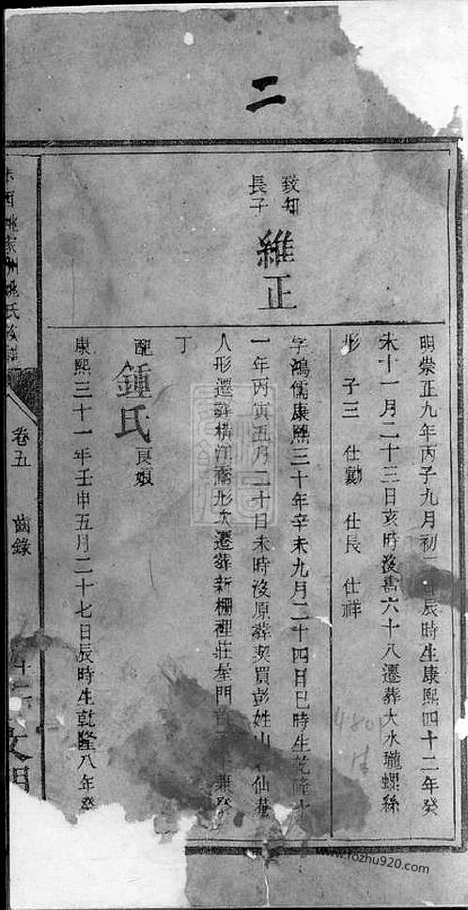 二
明崇正九年丙子九月初二 辰時生康熙四十二年癸
未十一月二十三日亥時沒壽六十八遷葬大水瓏螺絲
形 子三 仕勷 仕長 仕祥
致知
長子
維正
字鴻儒康熙三十年辛未九月二十四日巳時生乾隆
一年丙寅五月二十日未時沒原葬契買彭姓山 仙菴
人形遷葬橫江 形次遷葬新柵裡莊屋門首 兼癸
丁
配鍾氏良娘
康熙三十一年壬申五月二十七日辰時生乾隆八年癸
姚氏族譜
卷五 齒錄
www.fozhu920.com